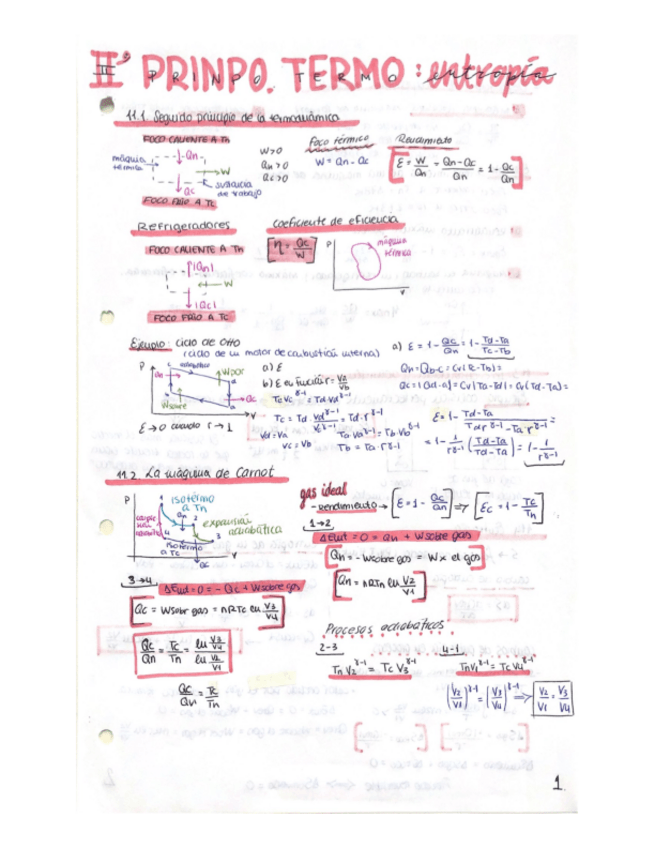 IIº PRINPO. TERMO: entropía
PRINPO TERMO
11.1. Segundo principio de la termodinámica
FOCO CALIENTE A Th
máquina térmica
Qh
W
Qc
sustancia de trabajo
FOCO FRÍO A Tc
W>0
Qh>0
Qc>0
Foco térmico
W = Qh - Qc
Rendimiento
ε = W/Qh = Qh-Qc/Qh = 1 - Qc/Qh
Refrigeradores
coeficiente de eficiencia
FOCO CALIENTE A Th
|Qh|
W
|Qc|
FOCO FRÍO A Tc
η = Qc/W
P
máquina térmica
V
Ejemplo: ciclo de Otto
(ciclo de un motor de combustión interna)
a) ε = 1 - Qc/Qh = 1 - Td-Ta/Tc-Tb
P
adiabático
Qh
Wpor
Qc
Wsobre
V
ε→0 cuando r→1
a) ε
b) ε en función r = Va/Vb
Tc Vc^γ-1 = Td Vd^γ-1
Tc = Td Vd^γ-1/Vc^γ-1 = Td r^γ-1
Vd = Va
Vc = Vb
Ta Va^γ-1 = Tb Vb^γ-1
Tb = Ta r^γ-1
Qc = |Qd-a| = Cv|Ta-Td| = Cv(Td-Ta) =
ε = 1 - Td-Ta/Td r^γ-1 - Ta r^γ-1 =
= 1 - 1/r^γ-1 (Td-Ta/Td-Ta) = 1 - 1/r^γ-1
11.2. La máquina de Carnot
P
isotérmo a Th
Qh
expansión adiabática
isotérmo a Tc
Qc
V
gas ideal
- Rendimiento → [ε = 1 - Qc/Qh] ⇒ [εc = 1 - Tc/Th]
1→2
ΔEint = 0 = Qh + Wsobre gas
Qh = -Wsobre gas = Wx el gas
Qh = nRTh ln V2/V1
3→4
ΔEint = 0 = -Qc + Wsobre gas
Qc = Wsobr gas = nRTc ln V3/V4
Qc/Qh = Tc/Th = ln V3/V4 / ln V2/V1
Qc/Qh = Tc/Th
Procesos adiabáticos
2-3
Th V2^γ-1 = Tc V3^γ-1
4-1
Th V1^γ-1 = Tc V4^γ-1
(V2/V1)^γ-1 = (V3/V4)^γ-1 ⇒ V2/V1 = V3/V4
1.